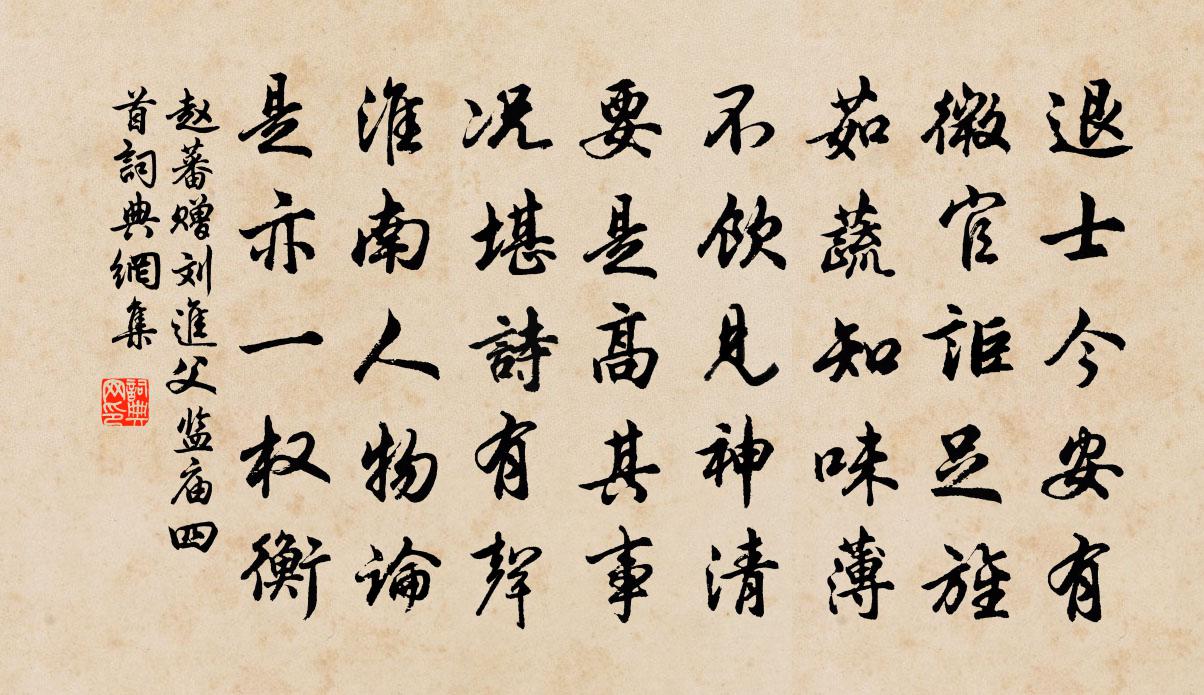 退士今安有
微官詎足旌
茹蔬知味薄
不飲見神清
要是高其事
况堪詩有聲
淮南人物論
是亦一权衡
赵蕃赠刘進父监庙四
首詞典網集
詞典网印